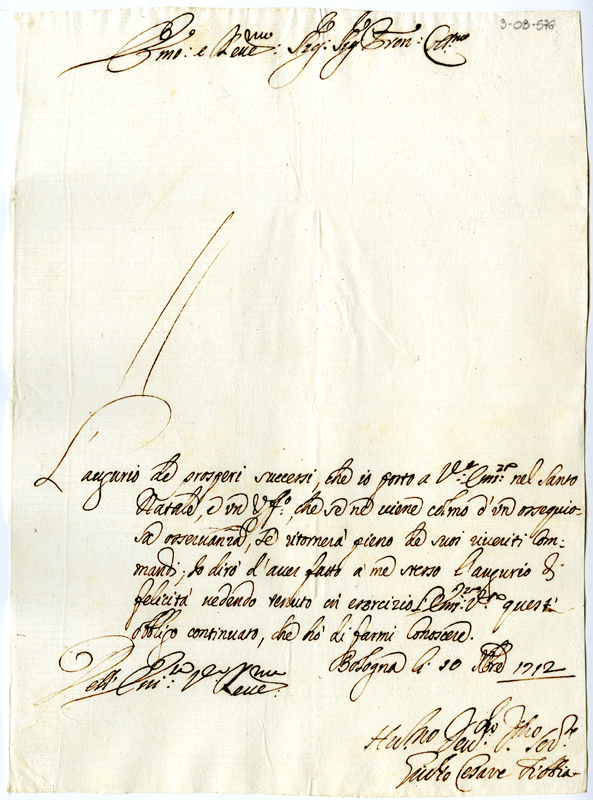 3-08-576
Emo: e Reve:mo Sig: Sig Pron: Col:mo
L'augurio de prosperi successi, che io porto a V:a Em:za nel Santo
Natale, è vn Vff:o, che se ne viene colmo d'vn ossequio-
sa osseruanza, se ritornerà pieno de suoi riueriti Com-
mandi; Io dirò d'auer fatto à me stesso l'augurio di
felicità vedendo tenuto in esercizio quest'
obbligo continuato, che hò di farmi Conoscere.
Bologna li 10 Xbre 1712
Dell' Em:za V:a Reve:ma
Hu:lmo Deu:mo Ser:re
Giulio Cesare